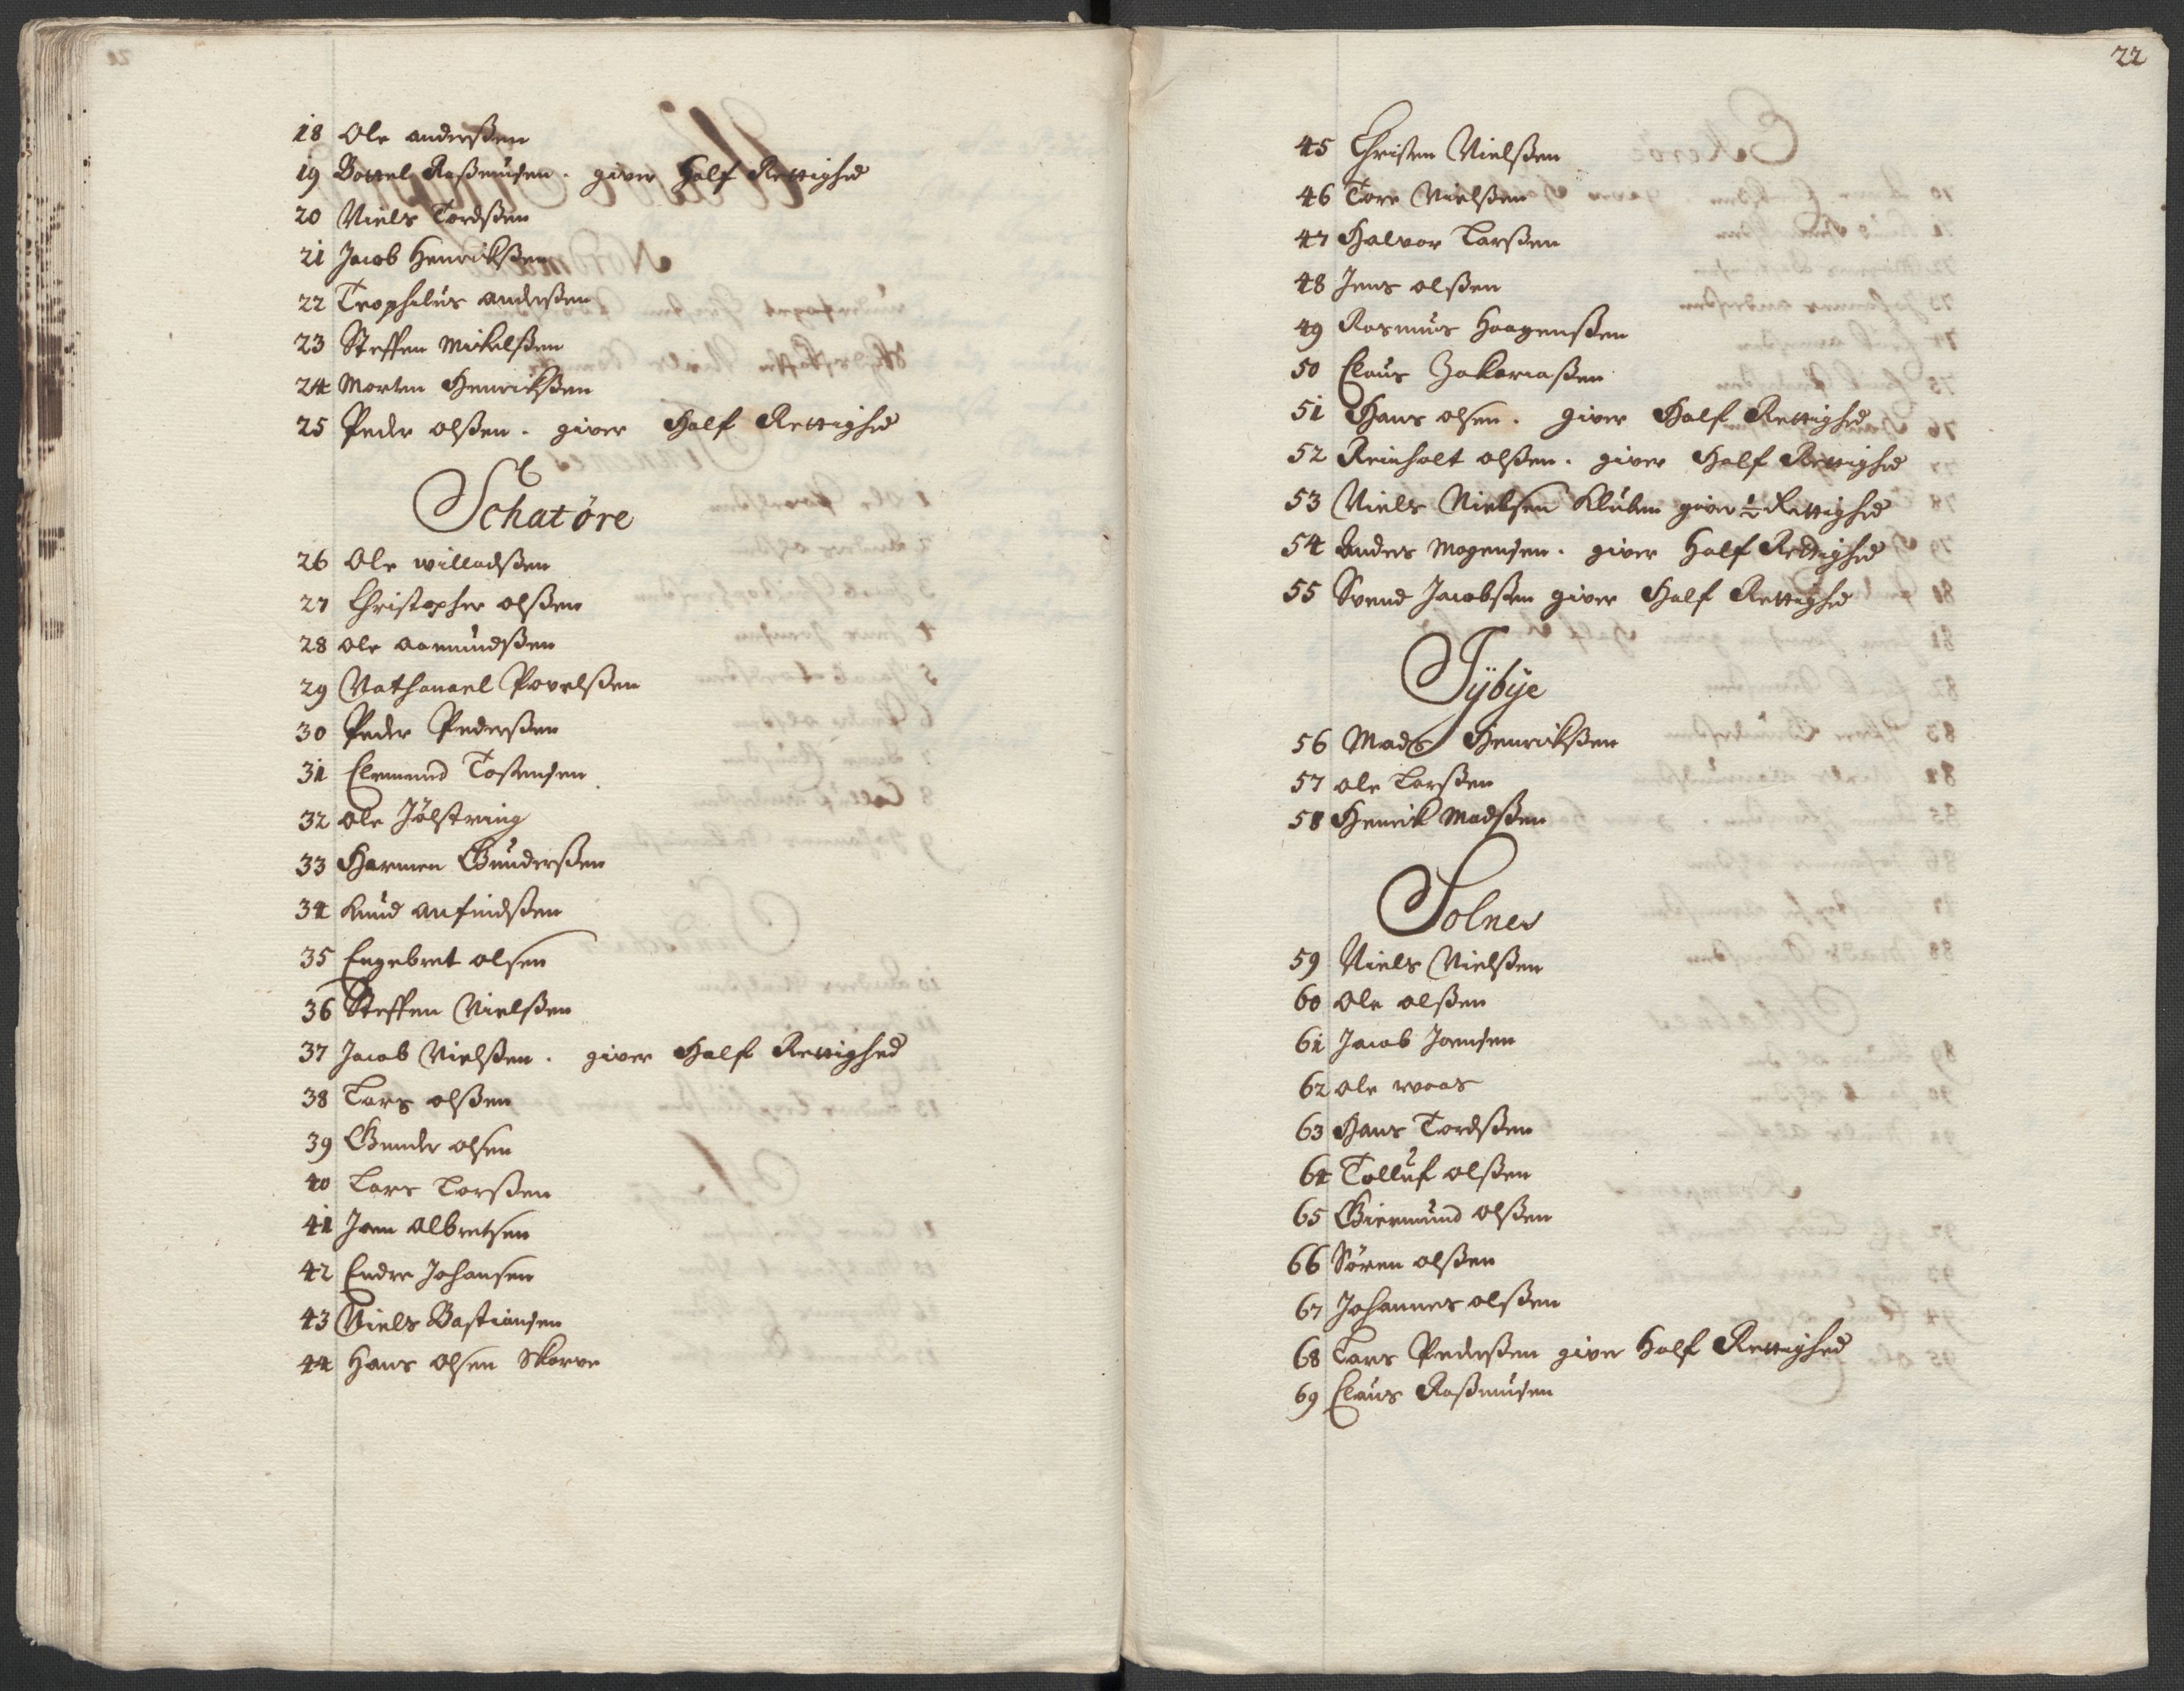 18 Ole anderßen
19 Bottel Raßmusen. giver Half Rettighed
20 Niels Tordßen
21 Jacob Henrickßen
22 Teophilus anderßen
23 Steffen Mickelßen
24 Morten Henrickßen
25 Peder olßen. giver Half Rettighed
Schatøre
26 Ole willadßen
27 Christopher olßen
28 ole aamundßen
29 Nathanael Povelßen
30 Peder Pederßen
31 Elemund Tostensen
32 ole Jölstring
33 Harmen Gunderßen
34 Knud anfindßen
35 Engebret olsen
36 Steffen Nielßen
37 Jacob Nielßen. giver Half Rettighed
38 Lars olßen
39 Gunder olsen
40 Lars Larßen
41 Joen Albretsen
42 Endre Johansen
43 Niels Bastiansen
44 Hans olsen Skorve
22
45 Christen Nielßen
46 Tore Nielßen
47 Halvor Larßen
48 Jens olßen
49 Rasmus Haagenßen
50 Claus Zakariaßen
51 Hans olsen. giver Half Rettighed
52 Reinholt olßen. giver Half Rettighed
53 Niels Nielsen Kluben giver ½ Rettighed
54 Anders Mogensen. giver Half Rettighed
55 Svend Jacobßen giver Half Rettighed
Tÿbÿe
56 Mads Henrickßen
57 ole Larßen
58 Henrik Madßen
Solnes
59 Niels Nielßen
60 ole olßen
61 Jacob Joensen
62 ole waas
63 Hans Tordßen
64 Tolluf olßen
65 Giermund olßen
66 Sören olßen
67 Johannes olßen
68 Lars Pederßen giver Half Rettighed
69 Claus Raßmusen